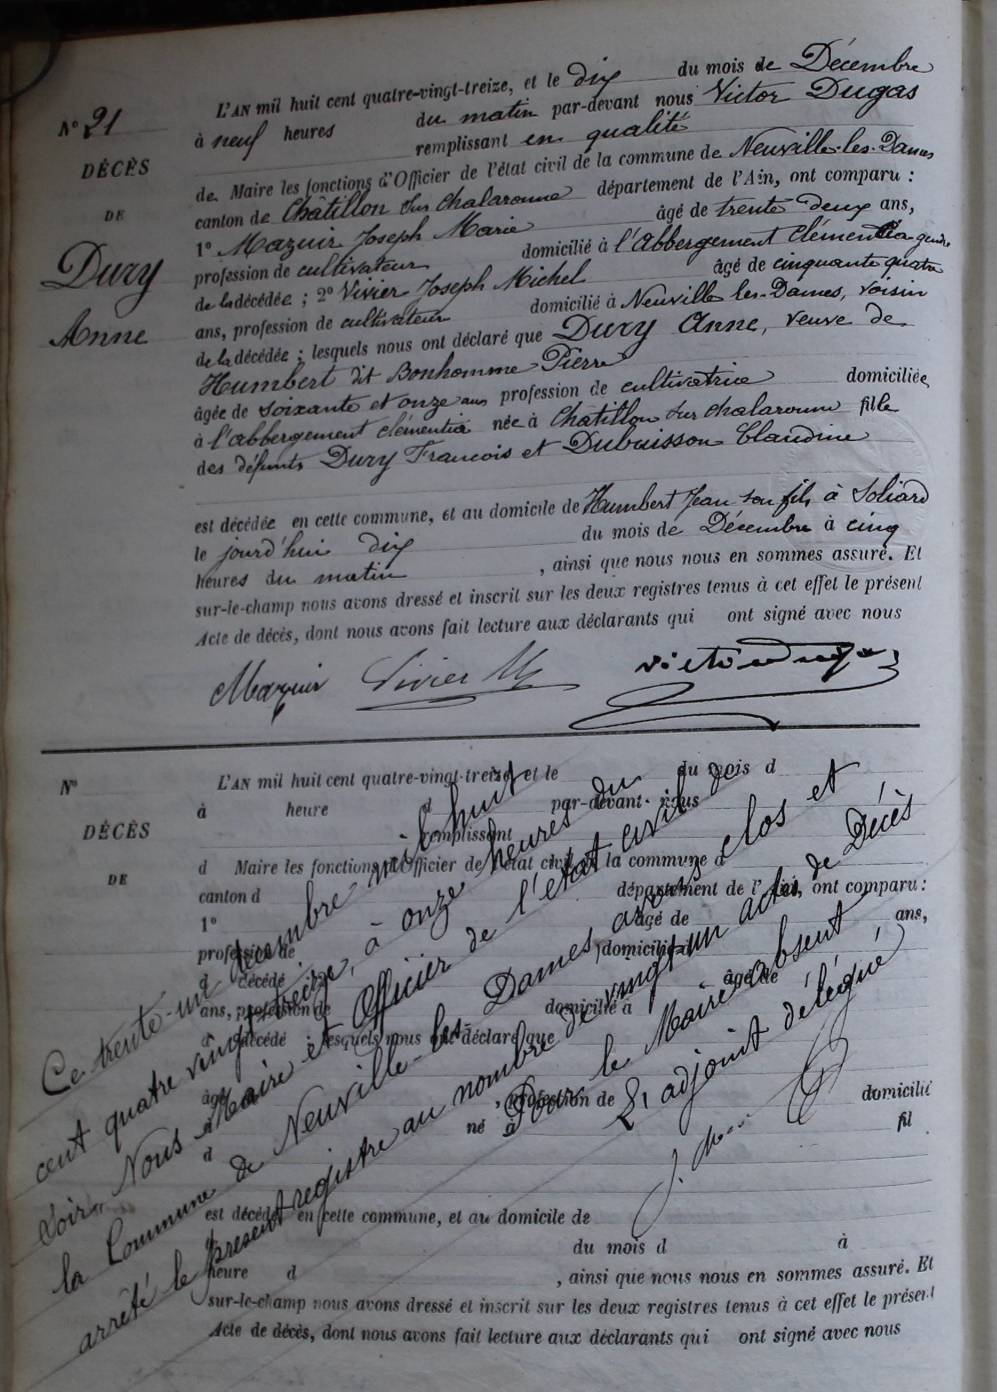 N° 21
DÉCÈS
DE
Dury
Anne
L'AN mil huit cent quatre-vingt-treize, et le dix du mois de Décembre
à neuf heures du matin par-devant nous Victor Dugas
remplissant en qualité
de Maire les fonctions d'Officier de l'état civil de la commune de Neuville-les-Dames
canton de Châtillon sur Chalaronne département de l'Ain, ont comparu :
1° Mazuir Joseph Marie âgé de trente deux ans,
profession de cultivateur domicilié à l'Abbergement Clémentia gendre
de la décédée ; 2° Vivier Joseph Michel âgé de cinquante quatre
ans, profession de cultivateur domicilié à Neuville les-Dames, voisin
de la décédée ; lesquels nous ont déclaré que Dury Anne, veuve de
Humbert dit Bonhomme Pierre
âgée de soixante et onze ans profession de cultivatrice domiciliée
à l'abbergement clémentia née à Chatillon sur chalaronne fille
des défunts Dury Francois et Dubuisson Claudine
est décédée en cette commune, et au domicile de Humbert Jean son fils à Soliard
le jourd'hui dix du mois de Décembre à cinq
heures du matin , ainsi que nous nous en sommes assuré. Et
sur-le-champ nous avons dressé et inscrit sur les deux registres tenus à cet effet le présent
Acte de décès, dont nous avons fait lecture aux déclarants qui ont signé avec nous
Mazuir Vivier M victor dugas
N° L'AN mil huit cent quatre-vingt-treize, et le du mois d
à heure d par-devant nous
DÉCÈS remplissant
d Maire les fonctions d'Officier de l'état civil de la commune d
DE
canton d département de l'Ain, ont comparu :
1° âgé de ans,
profession de domicilié à
d décédé âgé de
ans, profession de domicilié à
d décédé ; lesquels nous ont déclaré que
âgé , profession de domicilié
à né à fil
d
est décédé en cette commune, et au domicile de
l du mois d à
heure d , ainsi que nous nous en sommes assuré. Et
sur-le-champ nous avons dressé et inscrit sur les deux registres tenus à cet effet le présent
Acte de décès, dont nous avons fait lecture aux déclarants qui ont signé avec nous
Ce trente-un décembre mil huit
cent quatre vingt treize, à onze heures du
soir, Nous Maire et Officier de l'état civil de
la Commune de Neuville-les-Dames avons clos et
arrêté le présent registre au nombre de vingt un actes de Décès
Pour le Maire absent
L'adjoint délégué